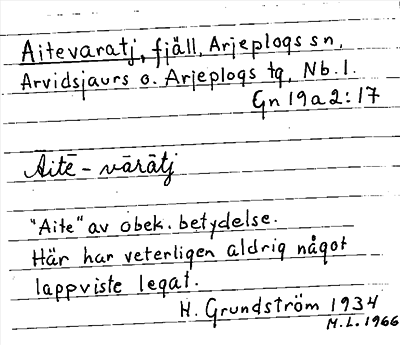 Aitevaratj, fjäll, Arjeplogs sn,
Arvidsjaurs o. Arjeplogs tg, Nb. l.
Gn 19a2:17
Äitē - vārātj
"Aite" av obek. betydelse.
Här har veterligen aldrig något
lappviste legat.
H. Grundström 1934
M.L. 1966